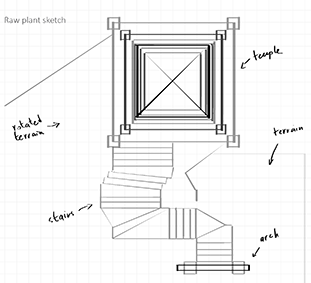 Raw plant sketch
temple
rotated
terrain
terrain
stairs
arch